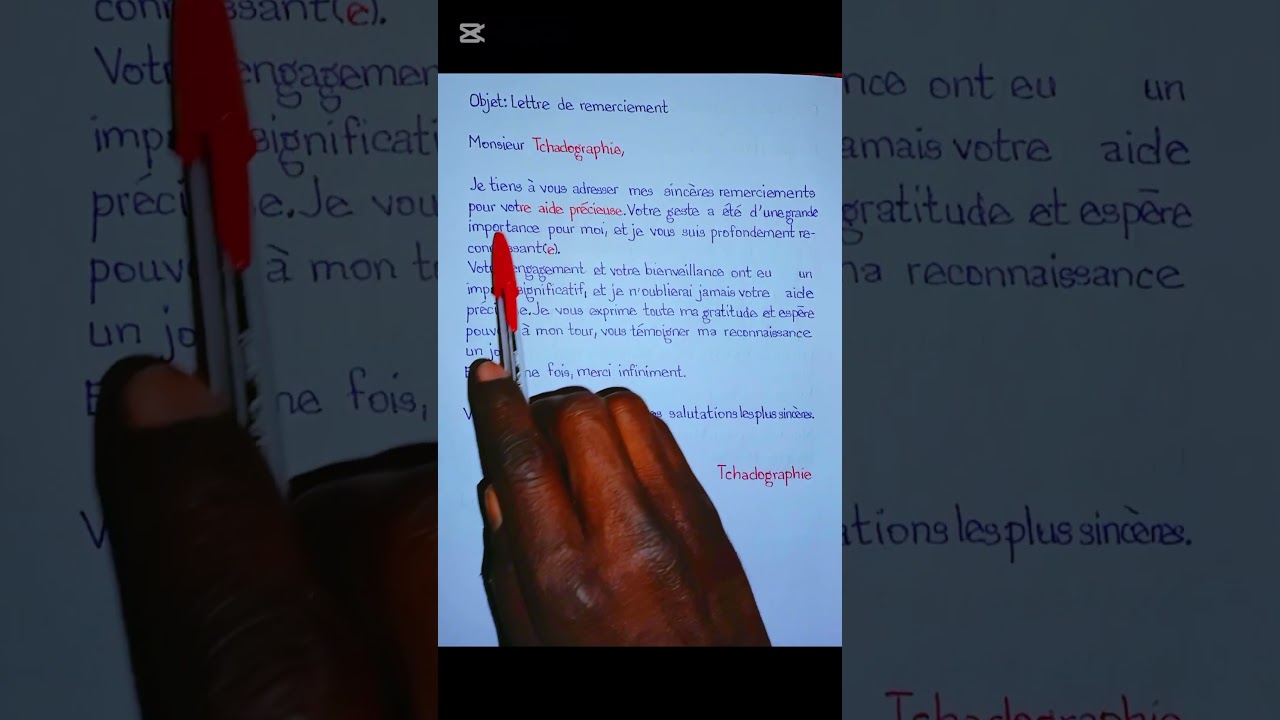 Objet: Lettre de remerciement
Monsieur Tchadographie,
Je tiens à vous adresser mes sincères remerciements
pour votre aide précieuse. Votre geste a été d'une grande
importance pour moi, et je vous suis profondément re-
con ssant(e).
Vot engagement et votre bienveillance ont eu un
imp significatif, et je n'oublierai jamais votre aide
préc e. Je vous exprime toute ma gratitude et espère
pouv à mon tour, vous témoigner ma reconnaissance
un jo
E ne fois, merci infiniment.
V es salutations les plus sincères.
Tchadographie